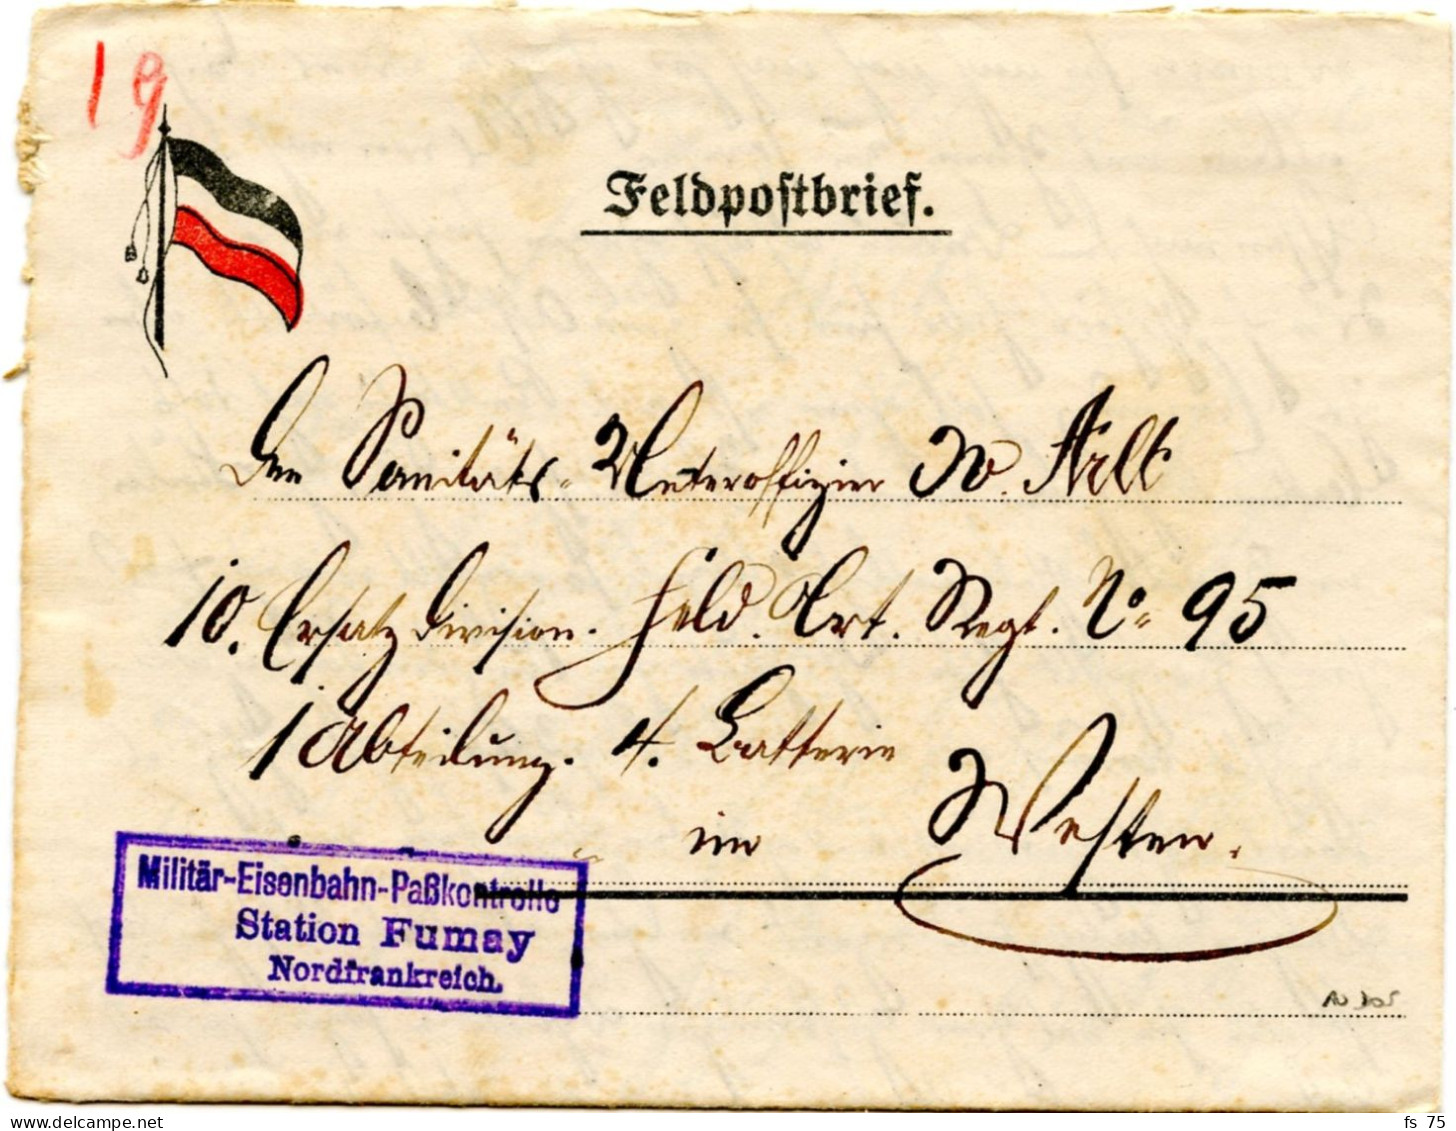 19
Feldpostbrief.
Den Sanitäts-Unteroffizier W. Arlt
10. Ersatz Division. Feld. Art. Regt. No. 95
1 Abteilung. 4. Batterie
im Westen.
Militär-Eisenbahn-Paßkontrolle
Station Fumay
Nordfrankreich.
AU DOS
delcampe.net
fs_75